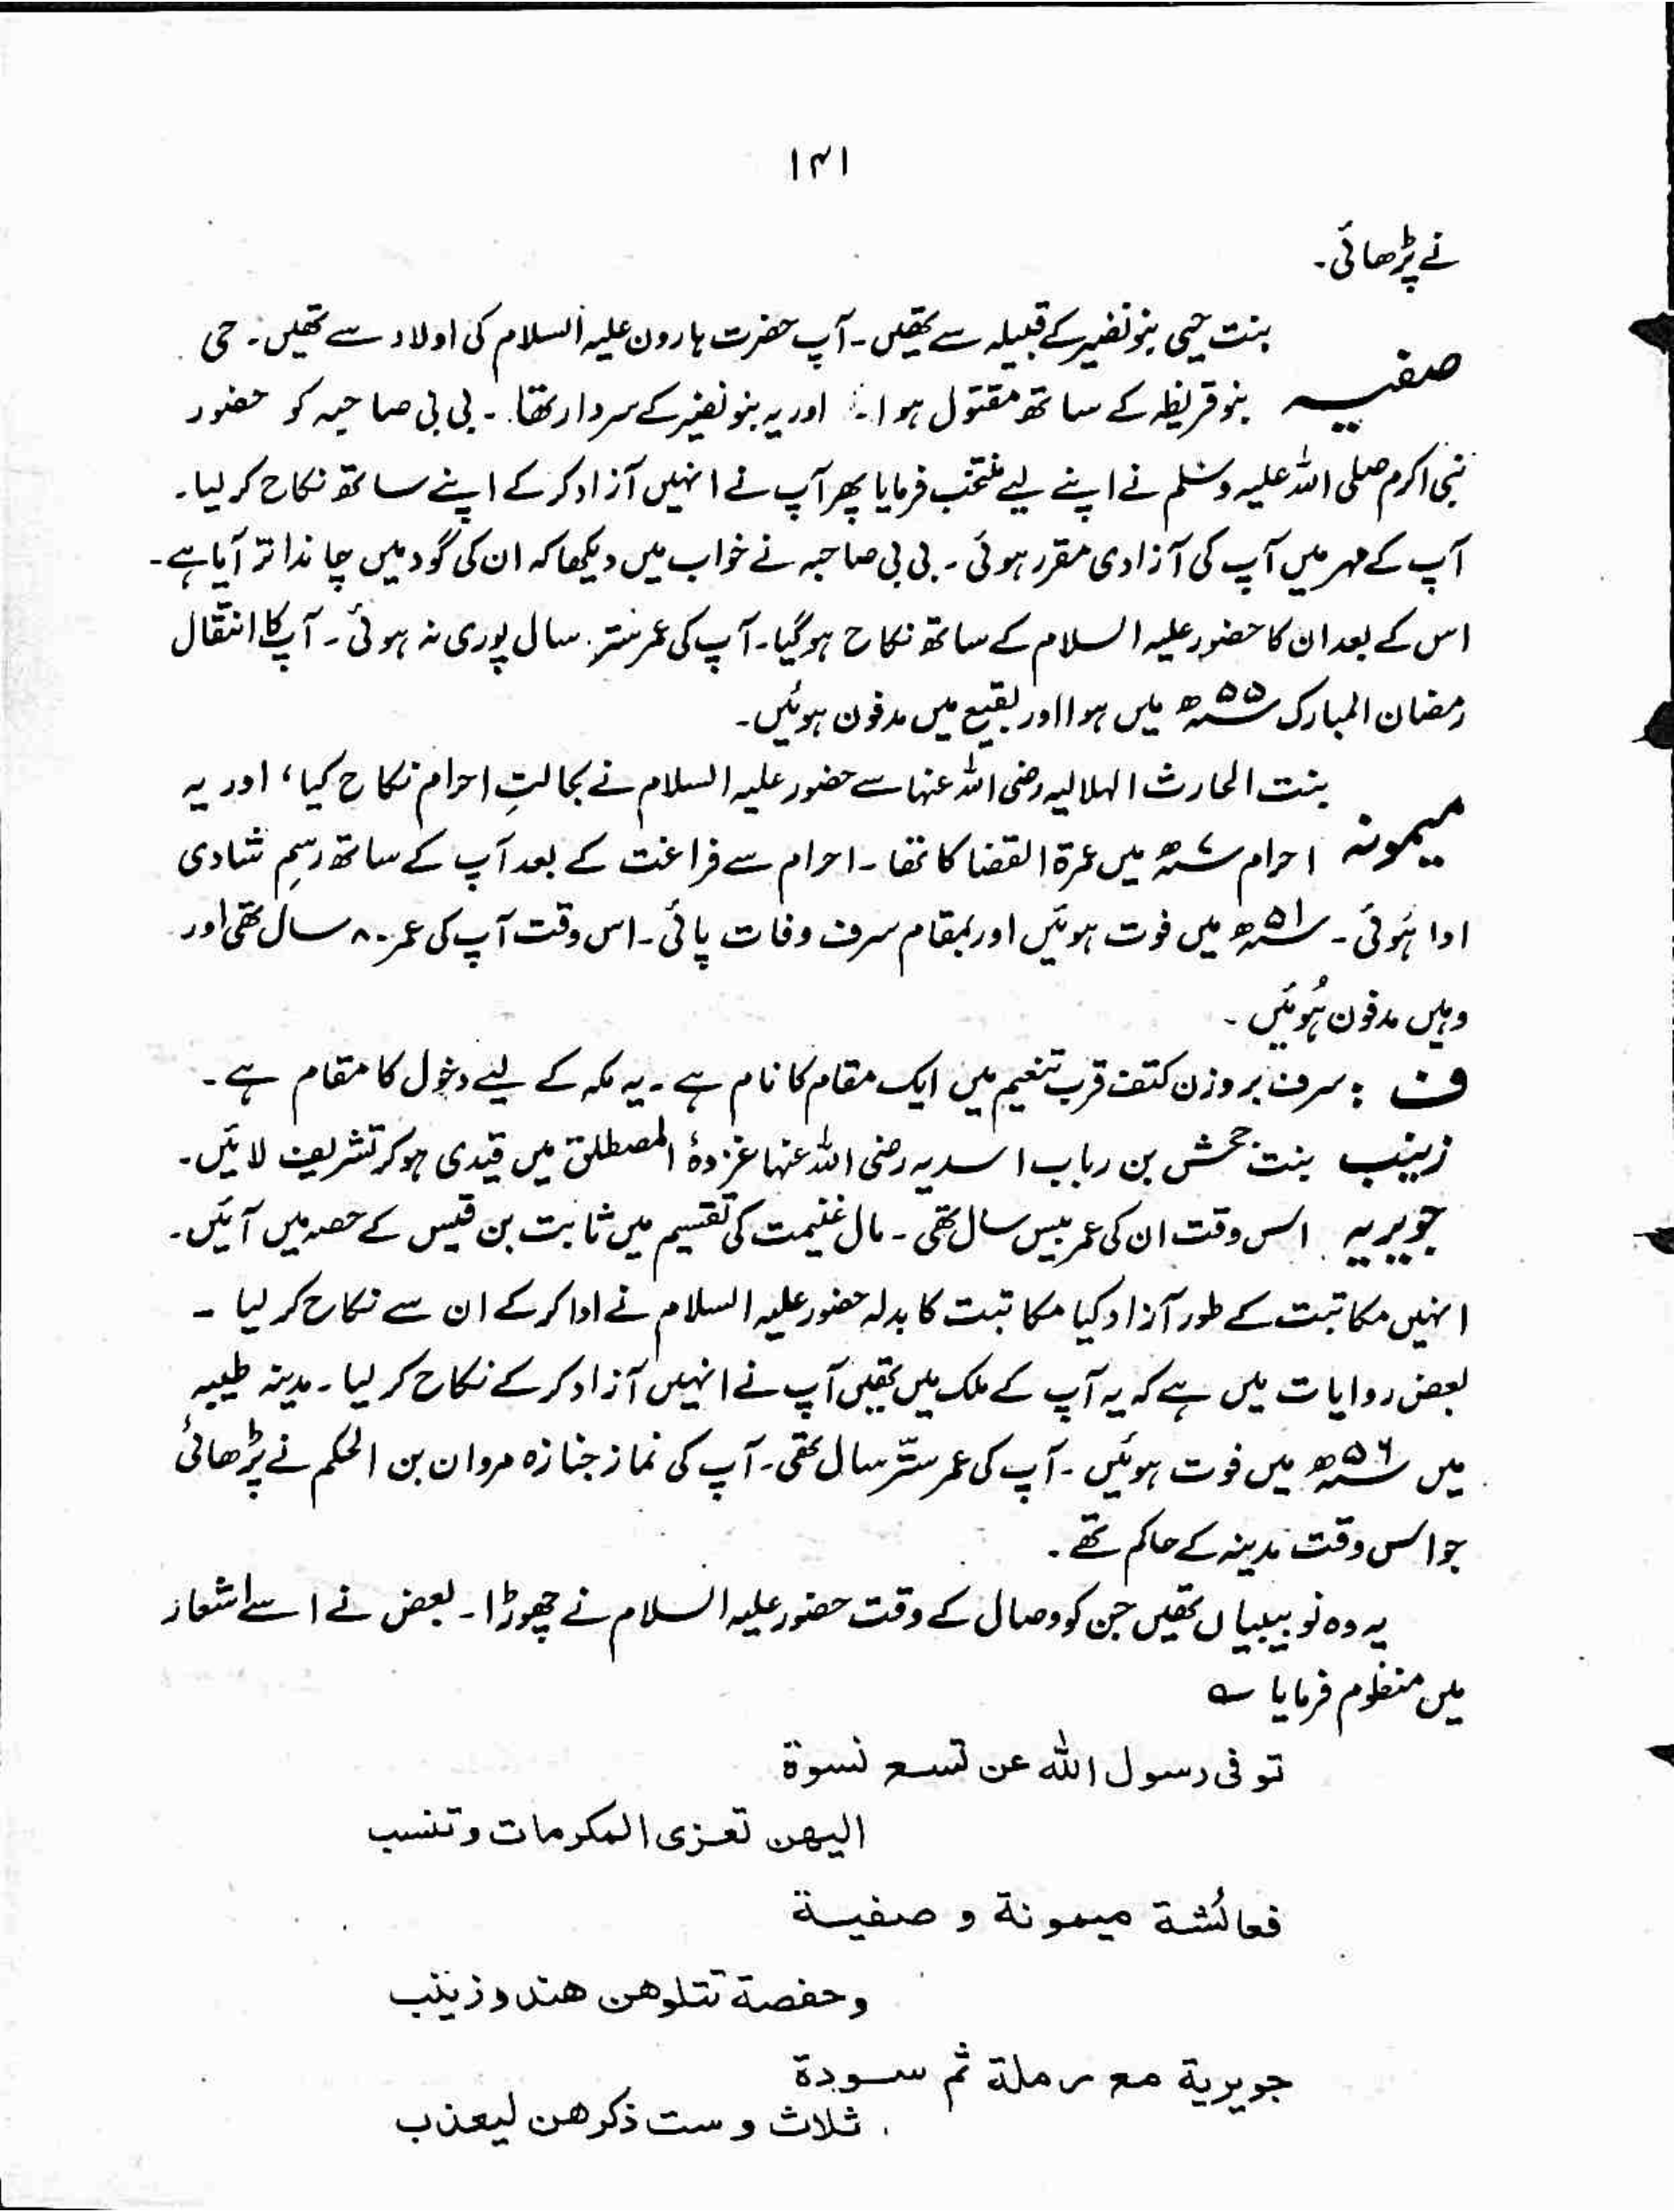 ۱۴۱
نے پڑھائی۔
صفیہ بنت حیی بنو نضیر کے قبیلہ سے تھیں۔ آپ حضرت ہارون علیہ السلام کی اولاد سے تھیں۔ حی
بنو قریظہ کے ساتھ مقتول ہوا۔ اور یہ بنو نضیر کے سردار تھا۔ بی بی صاحبہ کو حضور
نبی اکرم صلی اللہ علیہ وسلم نے اپنے لیے منتخب فرمایا پھر آپ نے انہیں آزاد کر کے اپنے ساتھ نکاح کر لیا۔
آپ کے مہر میں آپ کی آزادی مقرر ہوئی۔ بی بی صاحبہ نے خواب میں دیکھا کہ ان کی گود میں چاند اتر آیا ہے۔
اس کے بعد ان کا حضور علیہ السلام کے ساتھ نکاح ہو گیا۔ آپ کی عمر ستر سال پوری نہ ہوئی۔ آپ کا انتقال
رمضان المبارک ۵۵ھ میں ہوا اور بقیع میں مدفون ہوئیں۔
میمونہ بنت الحارث الہلالیہ رضی اللہ عنہا سے حضور علیہ السلام نے بحالتِ احرام نکاح کیا، اور یہ
احرام ۷ھ میں عمرۃ القضا کا تھا۔ احرام سے فراغت کے بعد آپ کے ساتھ رسمِ شادی
ادا ہُوئی۔ ۵۱ھ میں فوت ہوئیں اور بمقام سرف وفات پائی۔ اس وقت آپ کی عمر ۸۰ سال تھی اور
وہیں مدفون ہُوئیں۔
ف : سرف بروزن کتف قرب تنعیم میں ایک مقام کا نام ہے۔ یہ مکہ کے لیے دخول کا مقام ہے۔
زینب بنت جحش بن رباب اسدیہ رضی اللہ عنہا غزوۂ المصطلق میں قیدی ہو کر تشریف لائیں۔
جویریہ اس وقت ان کی عمر بیس سال تھی۔ مال غنیمت کی تقسیم میں ثابت بن قیس کے حصہ میں آئیں۔
انہیں مکاتبت کے طور آزاد کیا مکاتبت کا بدلہ حضور علیہ السلام نے ادا کر کے ان سے نکاح کر لیا۔
بعض روایات میں ہے کہ یہ آپ کے ملک میں تھیں آپ نے انہیں آزاد کر کے نکاح کر لیا۔ مدینہ طیبہ
میں ۵۶ھ میں فوت ہوئیں۔ آپ کی عمر ستّر سال تھی۔ آپ کی نماز جنازہ مروان بن الحکم نے پڑھائی
جو اس وقت مدینہ کے حاکم تھے۔
یہ وہ نو بیبیاں تھیں جن کو وصال کے وقت حضور علیہ السلام نے چھوڑا۔ بعض نے اسے اشعار
میں منظوم فرمایا ؎
توفی رسول اللہ عن تسع نسوۃ
الیھن تعزی المکرمات وتنسب
فعائشۃ میمونۃ و صفیۃ
وحفصۃ تتلوھن ھند وزینب
جویریۃ مع رملۃ ثم سودۃ
ثلاث وست ذکرھن لیعذب